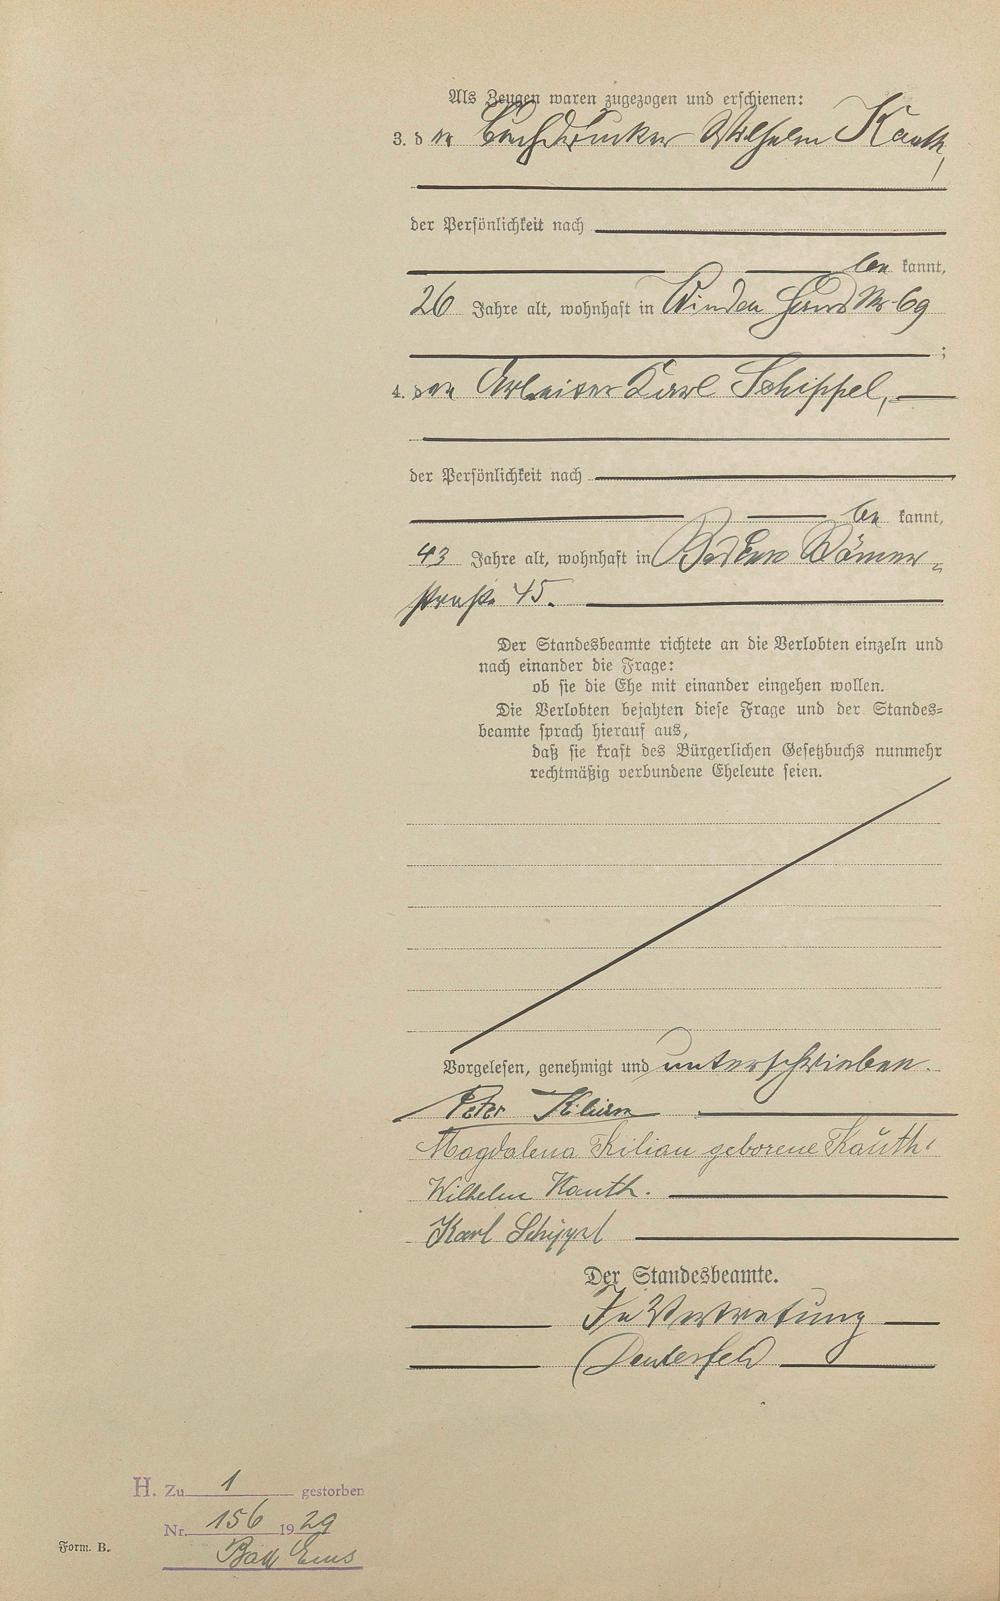 Als Zeugen waren zugezogen und erschienen:
3. der Buchdrucker Wilhelm Kauth,
der Persönlichkeit nach
be kannt,
26 Jahre alt, wohnhaft in Winden Haus Nr. 69
;
4. der Arbeiter Karl Schippel,
der Persönlichkeit nach
be kannt,
43 Jahre alt, wohnhaft in Bad Ems Römer-
straße 45.
Der Standesbeamte richtete an die Verlobten einzeln und
nach einander die Frage:
ob sie die Ehe mit einander eingehen wollen.
Die Verlobten bejahten diese Frage und der Standes-
beamte sprach hierauf aus,
daß sie kraft des Bürgerlichen Gesetzbuchs nunmehr
rechtmäßig verbundene Eheleute seien.
Vorgelesen, genehmigt und unterschrieben.
Peter Kilian
Magdalena Kilian geborene Kauth.
Wilhelm Kauth.
Karl Schippel
Der Standesbeamte.
In Vertretung
H. Zu 1 gestorben
Nr. 156 1929
Bad Ems
Form. B.